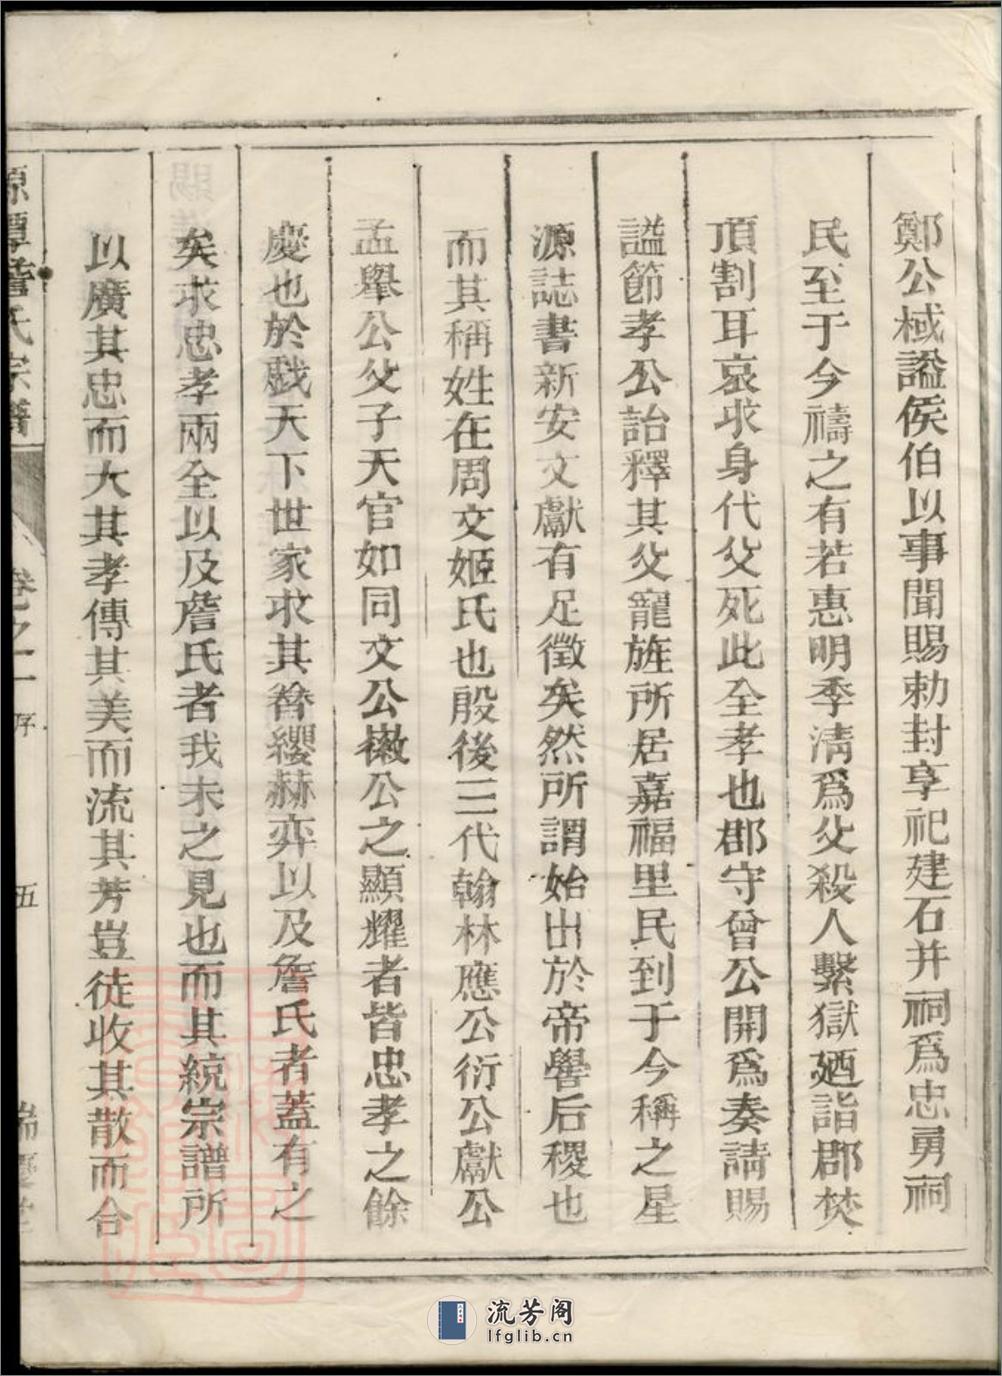 鄭公棫謚侯伯以事聞賜勅封享祀建石并祠爲忠勇祠
民至于今禱之有若惠明季淸爲父殺人繫獄廼詣郡焚
頂割耳哀求身代父死此全孝也郡守曾公開爲奏請賜
謚節孝公詒釋其父寵旌所居嘉福里民到于今稱之星
源誌書新安文獻有足徵矣然所謂始出於帝嚳后稷也
而其稱姓在周文姬氏也殷後三代翰林應公衍公獻公
孟舉公父子天官如同文公㦎公之顯耀者皆忠孝之餘
慶也於戲天下世家求其簪纓赫弈以及詹氏者蓋有之
矣求忠孝兩全以及詹氏者我未之見也而其統宗譜所
以廣其忠而大其孝傳其美而流其芳豈徒收其散而合
源潭詹氏宗譜
卷之一 序
五
流芳阁
lfglib.cn